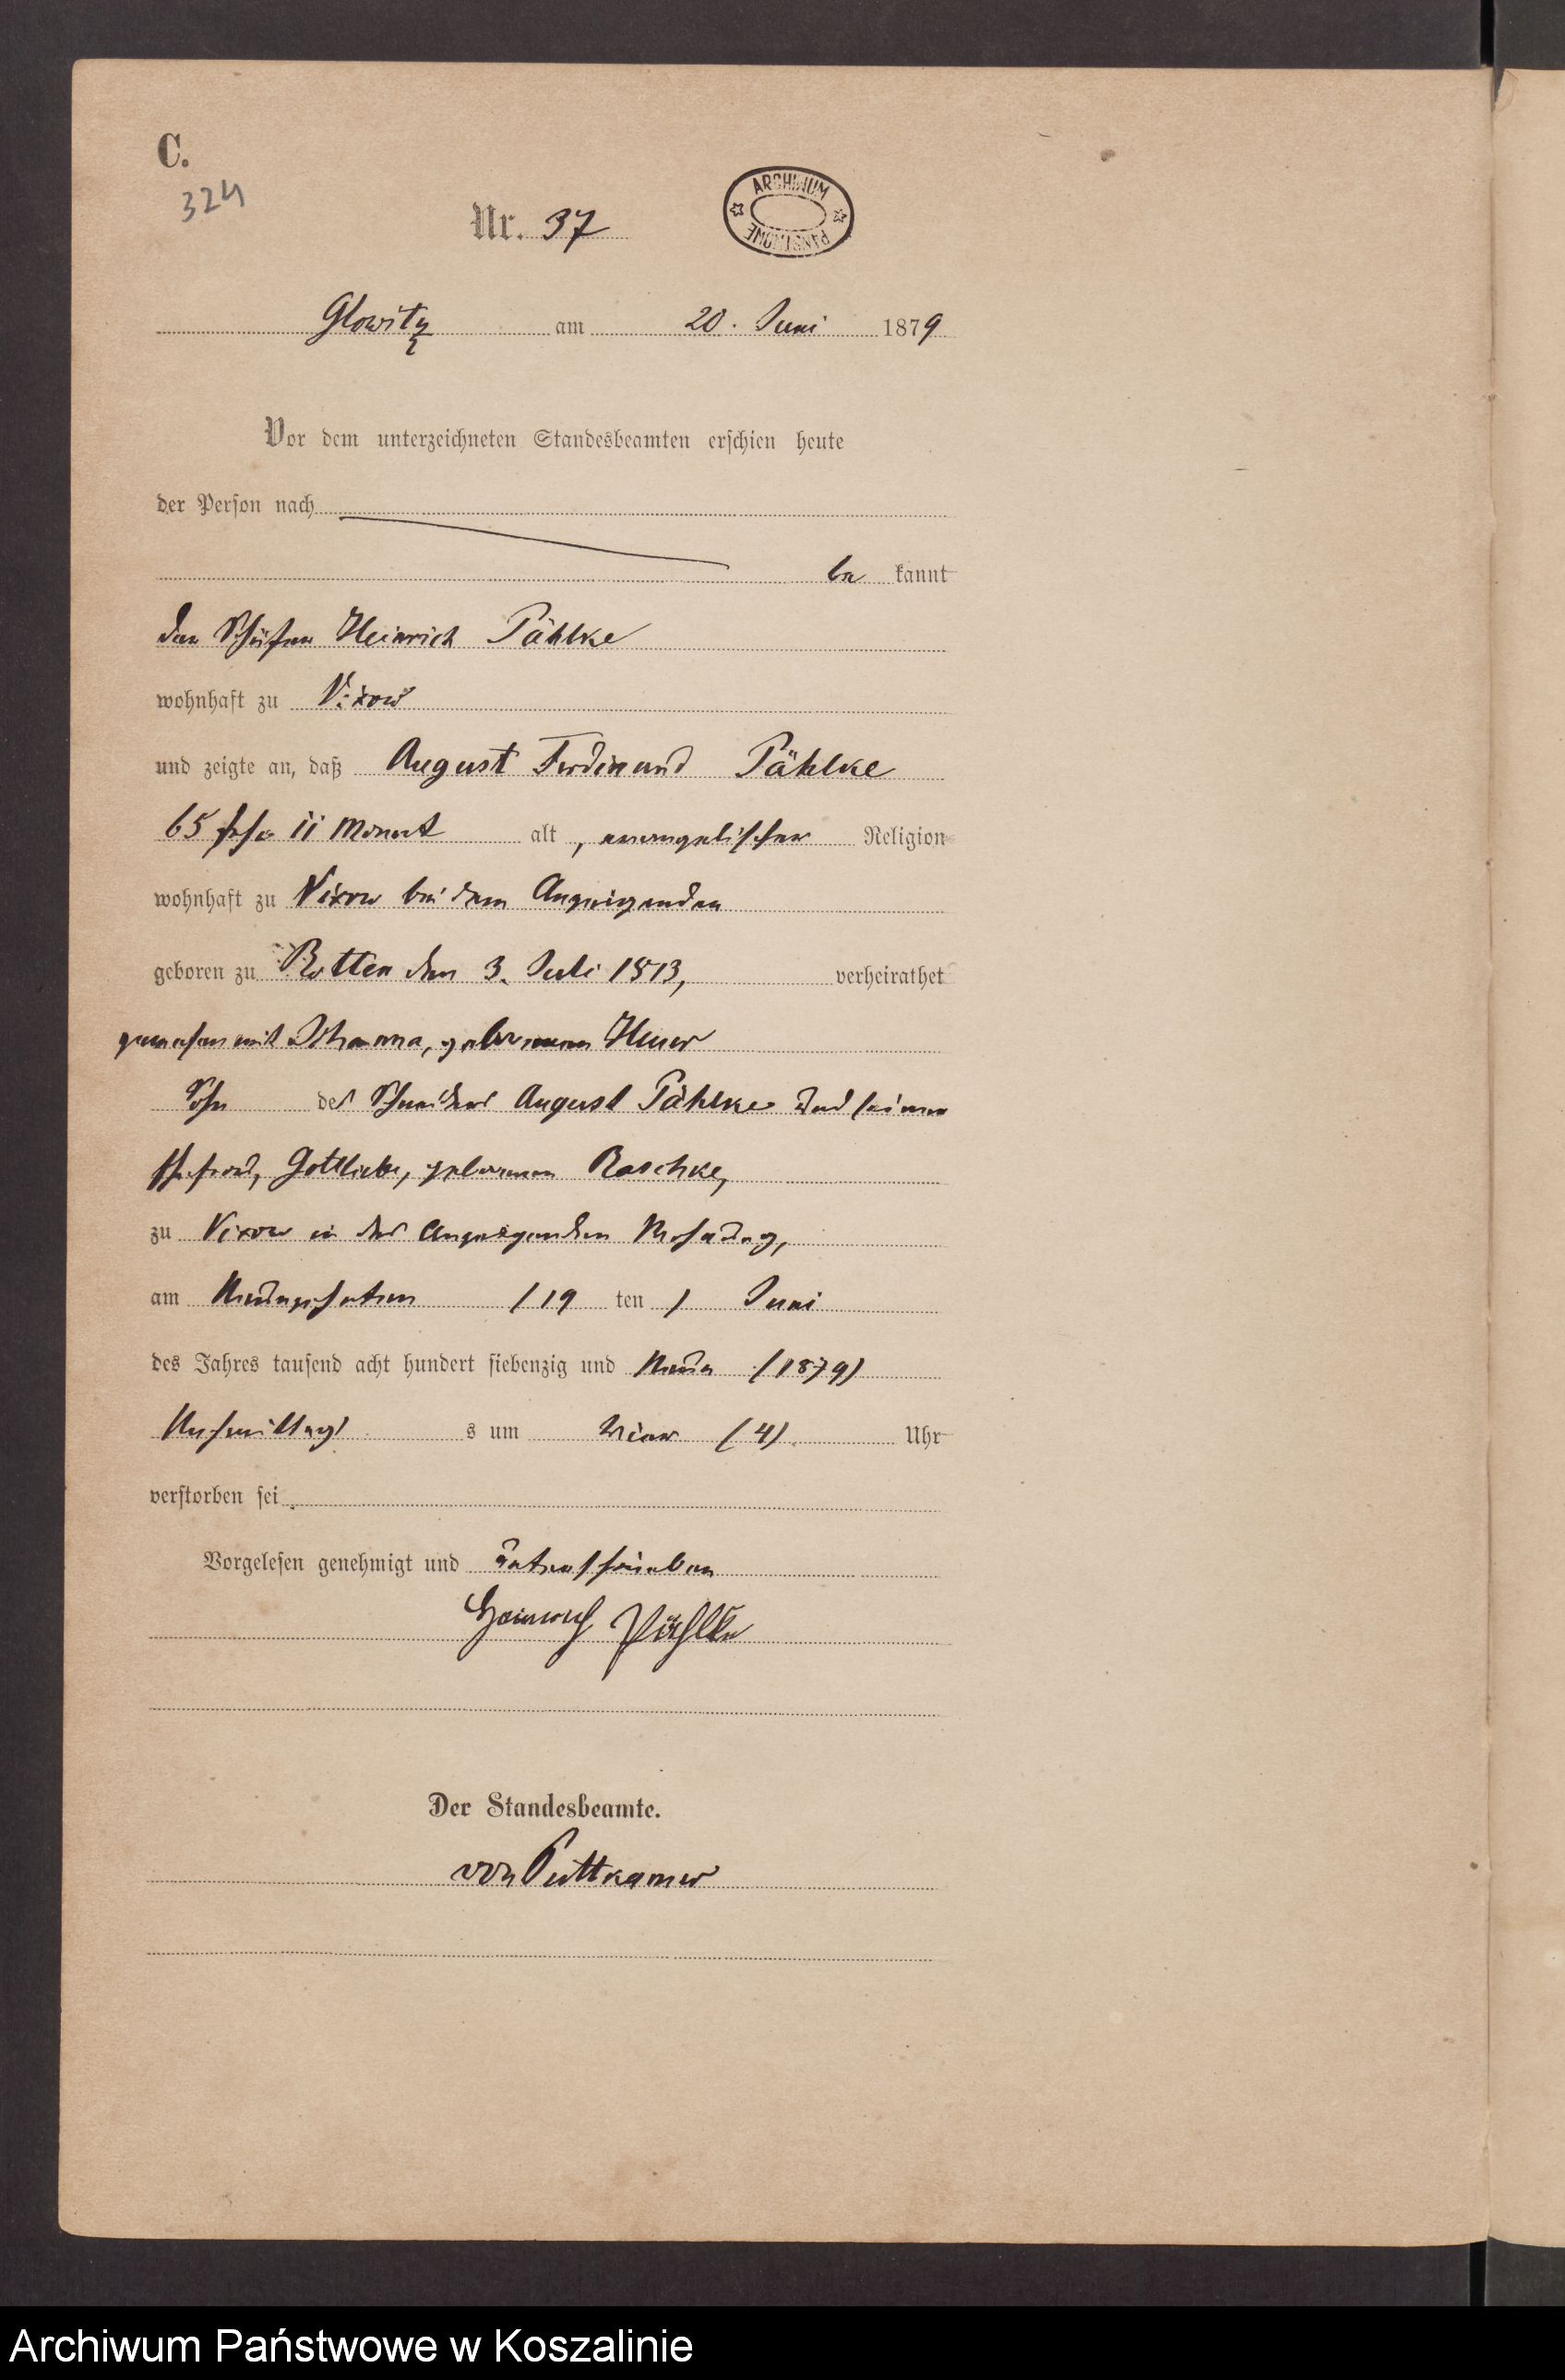 C.
324
Nr. 37
ARCHIWUM PAŃSTWOWE
Glowitz am 20. Juni 1879
Vor dem unterzeichneten Standesbeamten erschien heute
der Person nach
be kannt
der Schäfer Heinrich Pählke
wohnhaft zu Vixow
und zeigte an, daß August Ferdinand Pählke
65 Jahr 11 Monat alt, evangelischer Religion
wohnhaft zu Vixow bei dem Anzeigenden
geboren zu Rotten den 3. Juli 1813, verheirathet
gewesen mit Johanna, geborenen Heuer
Sohn des Schneiders August Pählke und seiner
Ehefrau, Gottliebe, geborenen Raschke,
zu Vixow in des Anzeigenden Behausung,
am Neunzehnten /19 ten / Juni
des Jahres tausend acht hundert siebenzig und Neun /1879/
Nachmittags s um Vier /4/ Uhr
verstorben sei.
Vorgelesen genehmigt und unterschrieben
Heinrich Pählke
Der Standesbeamte.
von Puttkamer
Archiwum Państwowe w Koszalinie